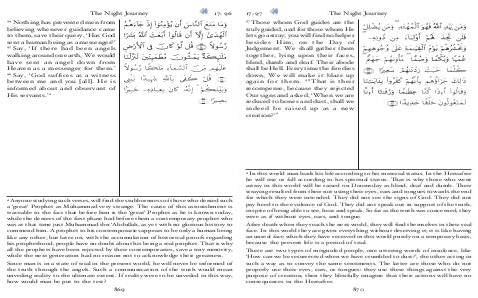 The Night Journey 17: 96
⁹⁴ Nothing has prevented men from
believing when over guidance came
to them, save their query, 'Has God
sent a human being as a messenger?'
⁹⁵ Say, 'If there had been angels
walking around on earth, We would
have sent an angel down from
Heaven as a messenger for them.'
⁹⁶ Say, 'God suffices as a witness
between me and you [all]. He is
informed about and observant of
His servants.'ᵃ
وَمَا مَنَعَ النَّاسَ أَن يُؤْمِنُوا إِذْ جَاءَهُمُ
الْهُدَىٰ إِلَّا أَن قَالُوا أَبَعَثَ اللَّهُ بَشَرًا
رَّسُولًا قُل لَّوْ كَانَ فِي الْأَرْضِ
مَلَائِكَةٌ يَمْشُونَ مُطْمَئِنِّينَ لَنَزَّلْنَا
عَلَيْهِم مِّنَ السَّمَاءِ مَلَكًا رَّسُولًا
قُلْ كَفَىٰ بِاللَّهِ شَهِيدًا بَيْنِي
وَبَيْنَكُمْ إِنَّهُ كَانَ بِعِبَادِهِ خَبِيرًا
بَصِيرًا
ᵃ Anyone studying such verses, will find the stubbornness of those who denied such
a 'great' Prophet as Muhammad very strange. The cause of this astonishment is
traceable to the fact that he is the 'great' Prophet as he is known today,
while the deniers of the first phase had before them a contemporary prophet who
was at that time just Muhammad ibn 'Abdullah, as yet with no glorious history to
commend him. A prophet to his contemporaries appears to be only a human being
whereas, in later years, with the accumulation of historical proofs regarding
his prophethood, people have no doubt about his being a real prophet. That is why
all the prophets have been rejected by their contemporaries, save a tiny minority,
while the next generation had no reason not to acknowledge their greatness.
Since man is in a state of trial in the present world, he will never be informed of
the truth through the angels. Such a communication of the truth would mean
unveiling reality to the ultimate extent. If reality were to be unveiled in this way,
how would man be put to the test?
869
17: 97 The Night Journey
⁹⁷ Those whom God guides are the
truly guided, and for those whom He
lets go astray, you will find no helper
besides Him, on the Day of
Judgement. We shall gather them
together, lying upon their faces,
blind, dumb and deaf. Their abode
shall be Hell. Every time the fire dies
down, We will make it blaze up
again for them. ⁹⁸ That is their
recompense, because they rejected
Our signs and asked, 'When we are
reduced to bones and dust, shall we
indeed be raised up as a new
creation?'ᵃ
وَمَن يَهْدِ اللَّهُ فَهُوَ الْمُهْتَدِ وَمَن يُضْلِلْ
فَلَن تَجِدَ لَهُمْ أَوْلِيَاءَ مِن دُونِهِ
وَنَحْشُرُهُمْ يَوْمَ الْقِيَامَةِ عَلَىٰ وُجُوهِهِمْ
عُمْيًا وَبُكْمًا وَصُمًّا مَّأْوَاهُمْ جَهَنَّمُ
كُلَّمَا خَبَتْ زِدْنَاهُمْ سَعِيرًا
ذَٰلِكَ جَزَاؤُهُم بِأَنَّهُمْ كَفَرُوا بِآيَاتِنَا
وَقَالُوا أَإِذَا كُنَّا عِظَامًا وَرُفَاتًا أَإِنَّا
لَمَبْعُوثُونَ خَلْقًا جَدِيدًا
ᵃ In this world man leads his life according to his material status. In the Hereafter
he will rise or fall according to his spiritual status. That is why those who went
astray in this world will be raised on Doomsday as blind, deaf and dumb. Their
straying resulted from their not using their eyes, ears and tongues towards the end
for which they were intended. They did not see the signs of God. They did not
pay heed to the evidence of God. They did not speak out in support of the truth,
inspite of being able to see, hear and speak. So far as the truth was concerned, they
were as if without eyes, ears, and tongue.
After death when they reach the next world, they will find themselves in their real
face. In this world they are given everything without deserving it; it is like having
an unreal face which they have received in this world purely on a temporary basis,
because the present life is a period of trial.
There are two types of misguided people, one uttering words of insolence, like
'How can we be resurrected when we have crumbled to dust?', the other acting in
such a way as to convey the same sentiments. The latter are those who do not
properly use their eyes, ears, or tongues; they use these things against the very
purpose of creation, then they blissfully imagine that their actions will have no
consequences in the Hereafter.
870